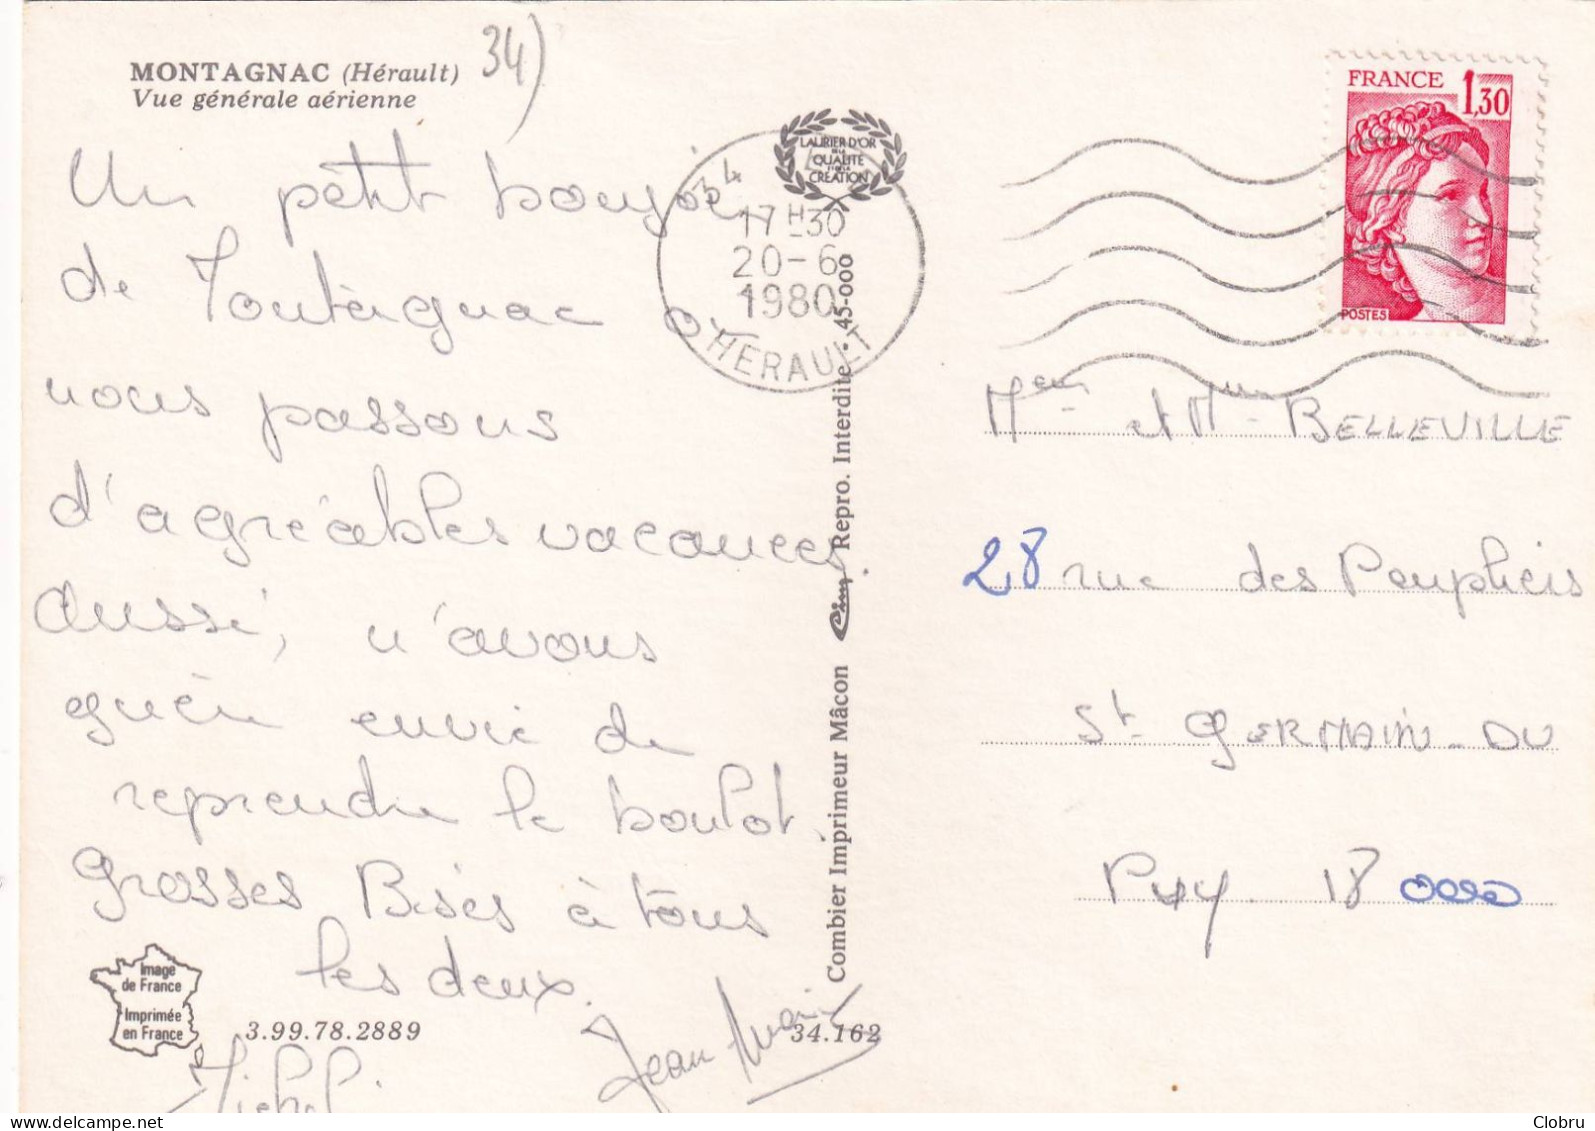 MONTAGNAC (Hérault)
Vue générale aérienne
34)
Un pétit bonjoir
de Montagnac où
nous passons
d'agréables vacances.
Aussi, n'avons
guère envie de
reprendre le boulot.
Grosses Bises à tous
les deux.
Jean Marie
Michel
Image
de France
Imprimée
en France
3.99.78.2889
34.162
LAURIER D'OR
DE LA
QUALITÉ
ET DE LA
CRÉATION
34
17H30
20-6
1980
HERAULT
Combier Imprimeur Mâcon Cim Repro. Interdite • 45-000
FRANCE 1,30
POSTES
Mr et Mme BELLEVILLE
28 rue des Peupliers
St GERMAIN-DU
PUY 18000
Clobru